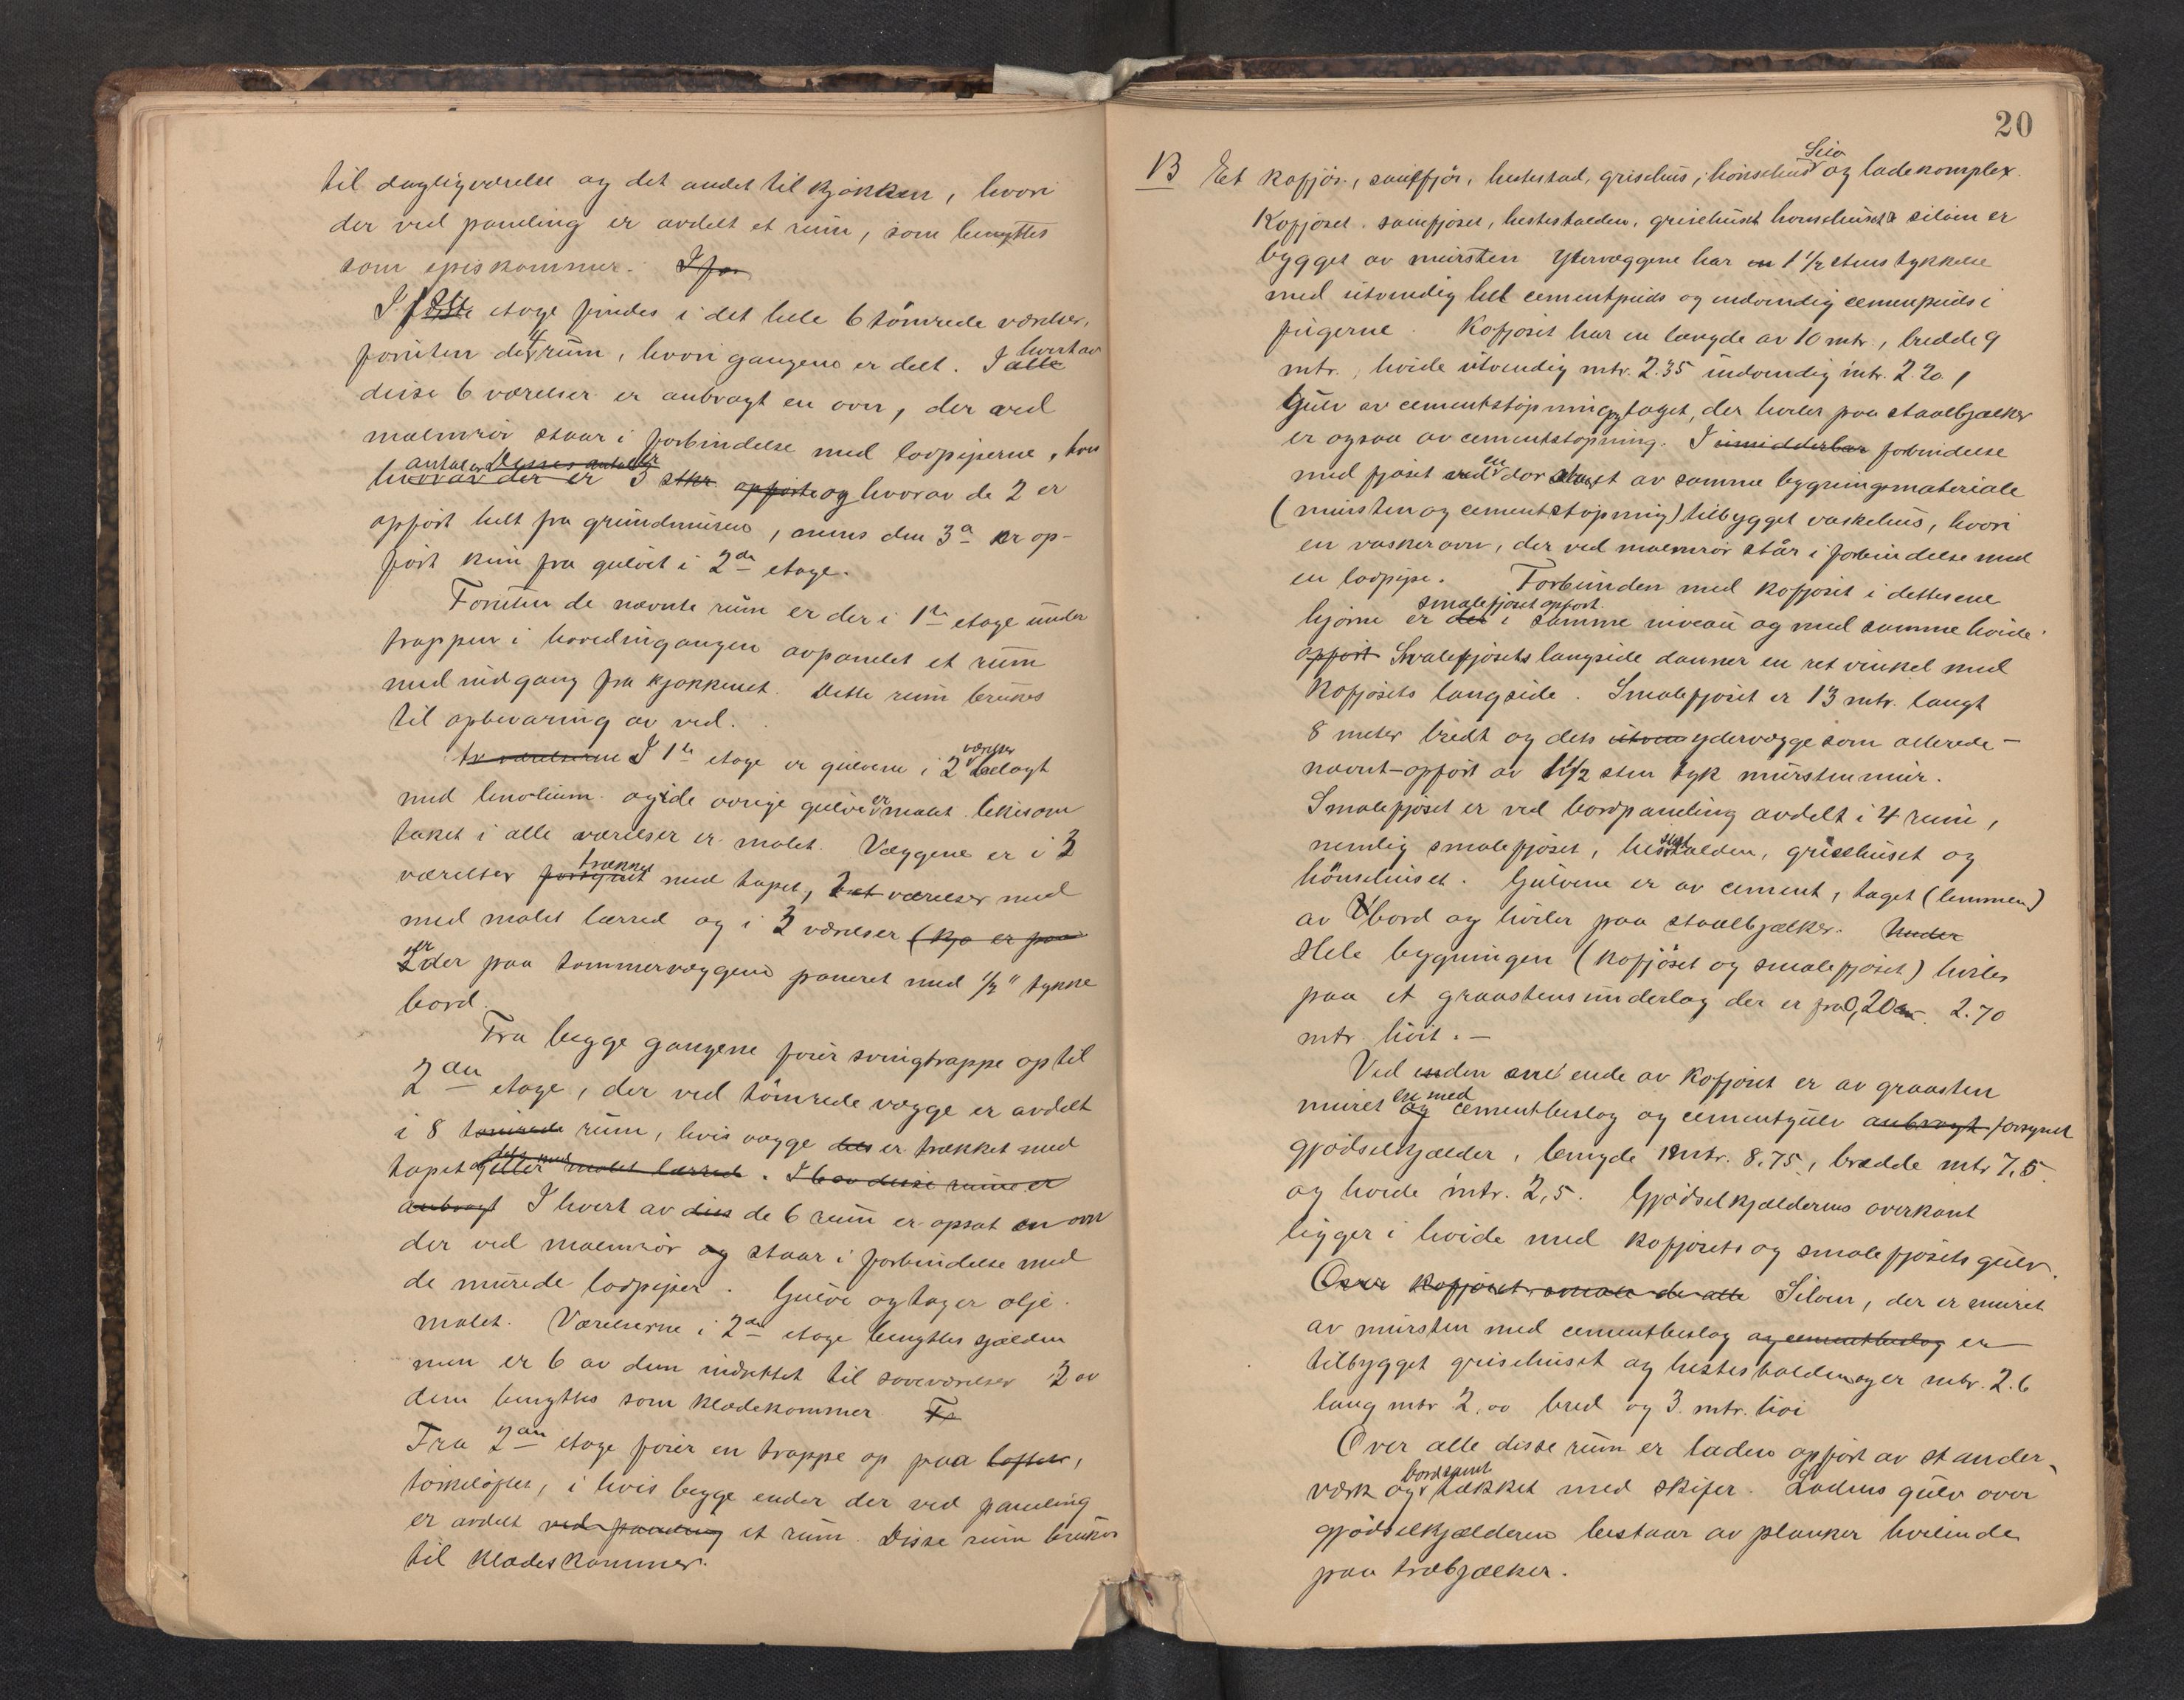 til dagligværelse og det andet til kjøkken, hvori
der ved panling er avdelt et rum, som benyttes
som spiskammer. I før
I første etage findes i det hele 6 tömrede værelser,
foruten de 4 rum, hvori gangene er delt. I hvert av alle
disse 6 værelser er anbragt en ovn, der ved
malmrör staar i forbindelse med lodpiperne, hvis
antal er Disses antal er
hvorav der er 3 stkr opförte og hvorav de 2 er
opfört helt fra grundmuren, mens den 3a er op-
fört kun fra gulvet i 2den etage.
Foruten de nævnte rum er der i 1te etage under
trappen i hovedingangen avpanelet et rum
med indgang fra kjøkkenet. Dette rum brukes
til opbevaring av ved.
Av værelserne I 1te etage er gulvene i 2 værelser belagt
med linolium og i de övrige gulve er malet likesom
taket i alle værelser er malet. Væggene er i 3
værelser forsynet trækket med tapet, 2 et værelser med
med malet lærred og i 3 værelser (kjö er paa
er der paa tømmervæggene paneret med 1/2" tykke
bord.
Fra begge gangene förer svingtrappe op til
2den etage, der ved tömrede vægge er avdelt
i 8 tömrede rum, hvis vægge der er trækket med
tapet og eller dels med malet lærred. I 6 av disse rum er
anbragt I hvert av diss de 6 rum er opsat en ovn
der ved malmrör og staar i forbindelse med
de murede lodpiper. Gulve og tag er olje-
malet. Værelserne i 2den etage benyttes sjælden
men er 6 av dem indrettet til soveværelser 2 av
dem benyttes som klædekammer. Fr
Fra 2den etage förer en trappe op paa loftet,
törkeloftet, i hvis begge ender der ved panling
er avdelt ved panling et rum. Disse rum brukes
til klædeskammer.
20
B Et kofjös, smalfjös, hestestald, grisehus, hönsehus Silo og ladekomplex.
Kofjöset, smalefjöset, hestestalden, grisehuset hönsehuset & siloen er
bygget av mursten Ytervæggene har en 1 1/2 stens tykkelse
med utvendig hel cementpuds og indvendig cementpuds i
fugerne. Kofjöset har en længde av 10 mtr., bredde 9
mtr., höide utvendig mtr. 2.35 indvendig mtr. 2.20,
Gulv av cementstöpning og taget, der hviler paa staalbjælker
er ogsaa av cementstöpning. I umiddelbar forbindelse
med fjöset ved en dör staar et av samme bygningsmateriale
(mursten og cementstöpning) tilbygget vaskehus, hvori
en vaskeravn, der ved malmrör står i forbindelse med
en lodpipe. Forbunden med kofjöset i dettes ene
hjörne er smalefjöset opfört det i samme niveau og med samme höide
opfört Smalefjösets langside danner en ret vinkel med
kofjösets langside. Smalefjöset er 13 mtr. langt
8 meter bredt og dets utven ydervægge som allerede –
nævnt – opfört av 1 1/2 sten tyk murstenmur.
Smalefjöset er ved bordpanling avdelt i 4 rum,
nemlig smalefjöset, hestestalden, grisehuset og
hönsehuset. Gulvene er av cement, taget (lemmen)
av bord og hviler paa staalbjælker. Under
Hele bygningen (kofjöset og smalefjöset) hviler
paa et graastensunderlag der er fra 0,20 – 2.70
mtr höit. –
Ved enden ene ende av kofjöset er av graasten
muret og en med cementbeslag og cementgulv anbragt forsynet
gjödselkjælder, længde mtr. 8.75, bredde mtr 7,5
og höide mtr. 2,5. Gjödselkjælderens overkant
ligger i höide med kofjösets og smalefjösets gulv.
Over kofjöset, smale de alle Siloen, der er muret
av mursten med cementbeslag og cementbeslag er
tilbygget grisehuset og hestestalden og er mtr. 2.6
lang mtr 2,00 bred og 3. mtr. höi
Over alle disse rum er laden opfört av stander-
værk og bord samt tækket med skifer. Ladens gulv over
gjödselkjælderen bestaar av planker hvilende
paa træbjælker.